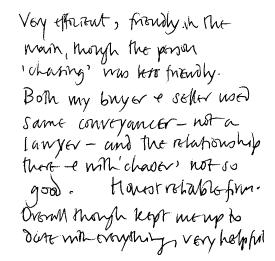 Very efficient, friendly in the
main, though the person
'chasing' was less friendly.
Both my buyer & seller used
same conveyancer - not a
lawyer - and the relationship
there & with 'chaser' not so
good. Honest reliable firm.
Overall though kept me up to
date with everything, very helpful